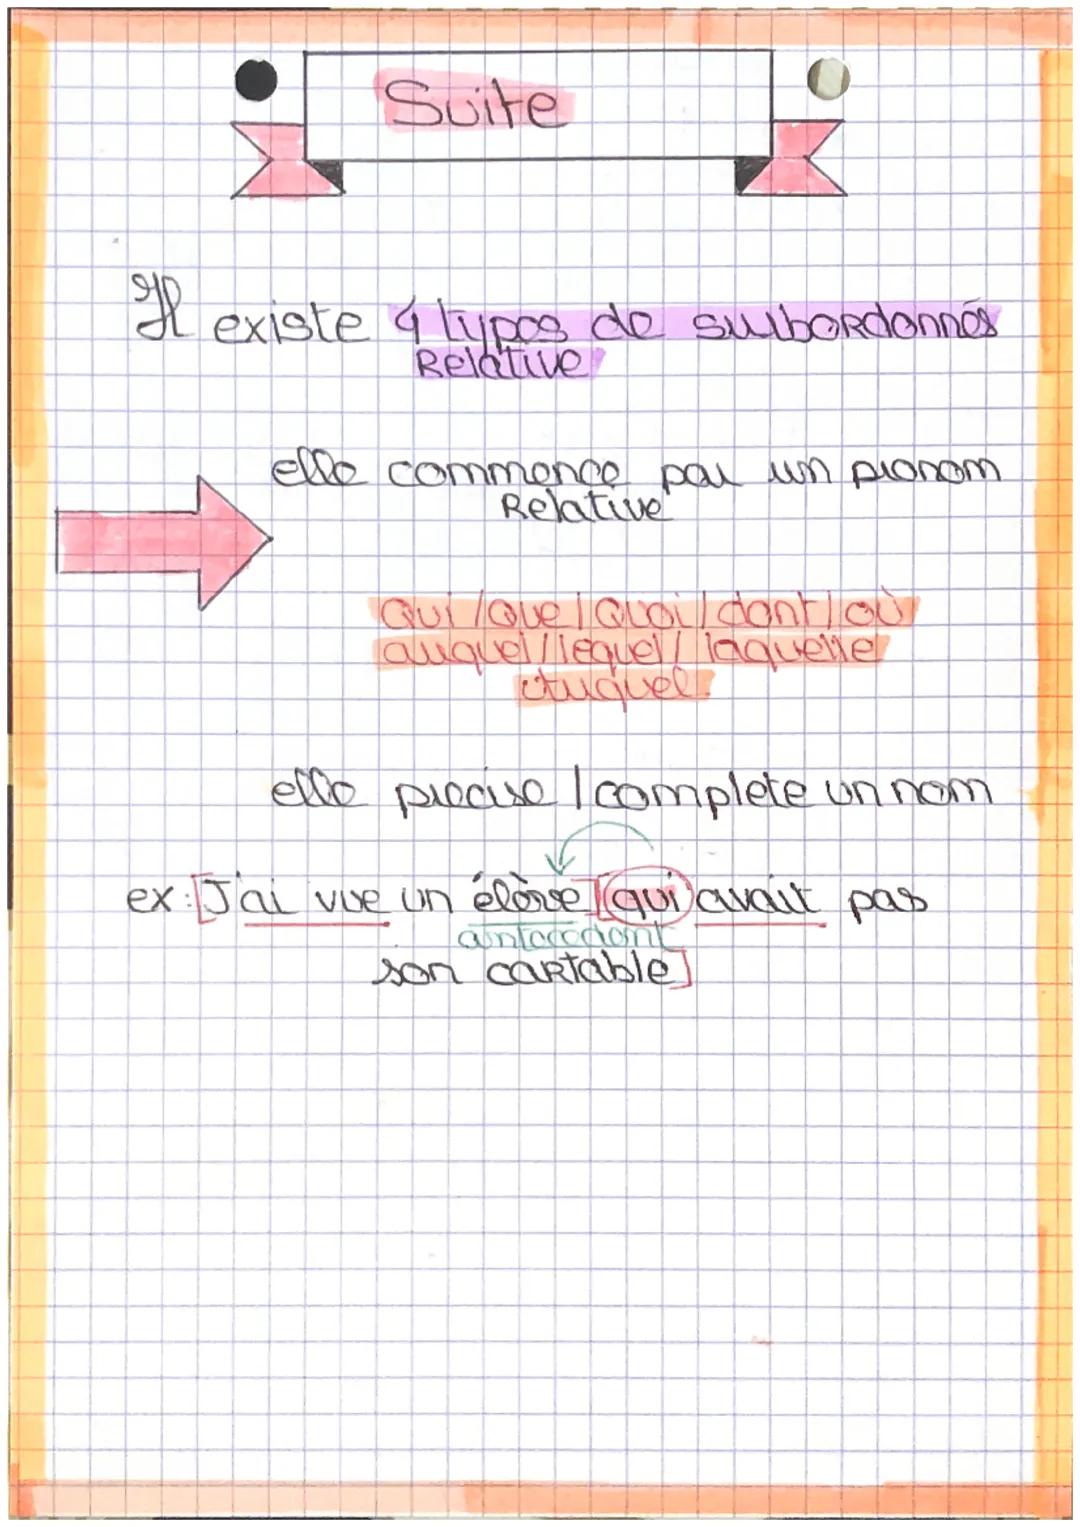 Suite
Il existe 4 types de subordonnés
Relative
elle commence par un pronom
Relative
Qui / Que / Quoi / dont / où
auquel // lequel / laquelle
elle precise / complete un nom
ex : [J'ai vue un élève] [qui avait pas
antecedent
son cartable]